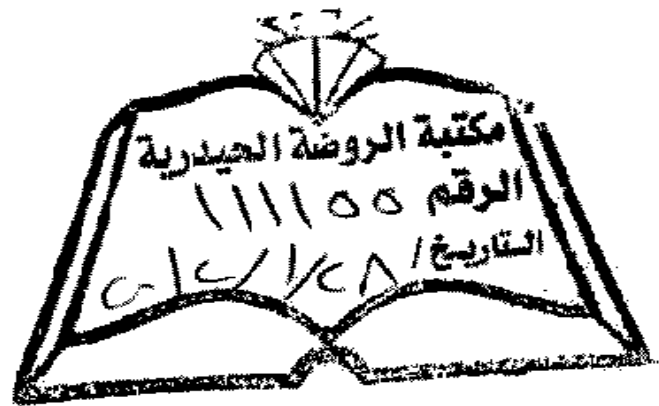 مكتبة الروضة الحيدرية
الرقم ١١١١٥٥
التاريخ / ٢٨/١/٢٠١٢